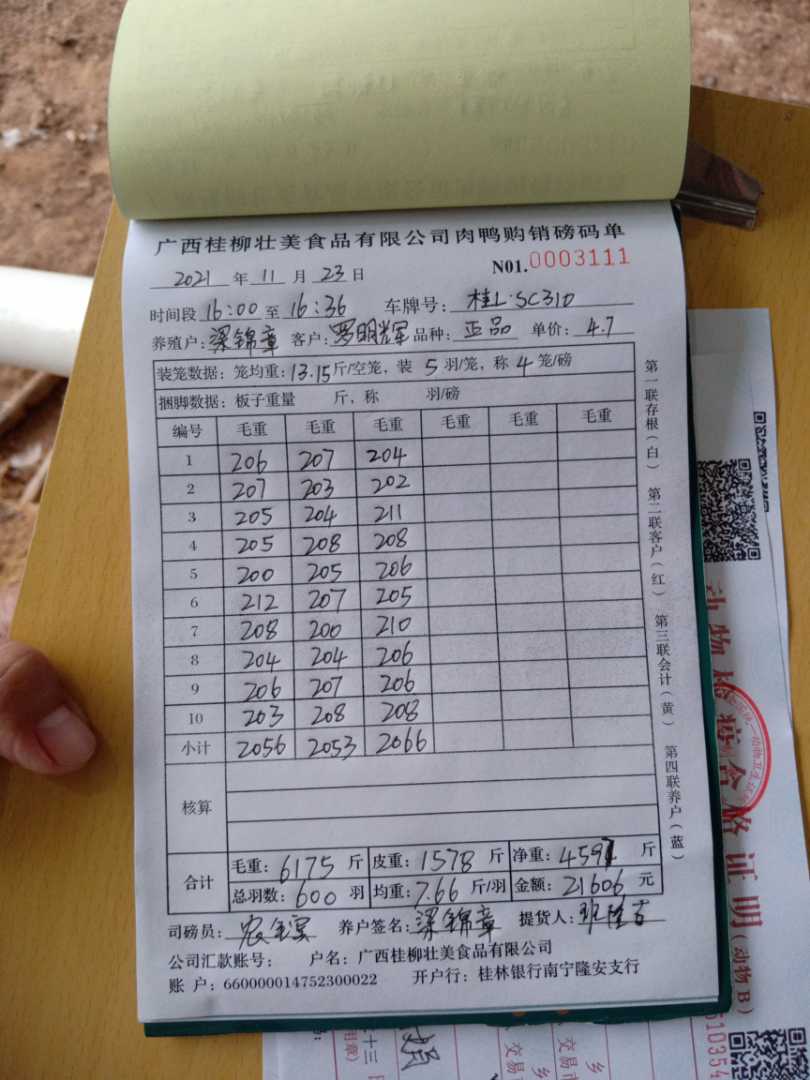 广西桂柳壮美食品有限公司肉鸭购销磅码单
2021 年 11 月 23 日 N01.0003111
时间段 16:00 至 16:36 车牌号: 桂L·SC310
养殖户: 梁锦章 客户: 罗明辉 品种: 正品 单价: 4.7
装笼数据: 笼均重: 13.15 斤/空笼, 装 5 羽/笼, 称 4 笼/磅
捆脚数据: 板子重量 斤, 称 羽/磅
编号 毛重 毛重 毛重 毛重 毛重 毛重
1 206 207 204
2 207 203 202
3 205 204 211
4 205 208 208
5 200 205 206
6 212 207 205
7 208 200 210
8 204 204 206
9 206 207 206
10 203 208 208
小计 2056 2053 2066
核算
合计 毛重: 6175 斤 皮重: 1578 斤 净重: 4597 斤
总羽数: 600 羽 均重: 7.66 斤/羽 金额: 21606 元
司磅员: 养户签名: 梁锦章 提货人:
公司汇款账号: 户名: 广西桂柳壮美食品有限公司
账 户: 660000014752300022 开户行: 桂林银行南宁隆安支行
第一联存根(白) 第二联客户(红) 第三联会计(黄) 第四联养户(蓝)
动物检疫合格证明(动物B)